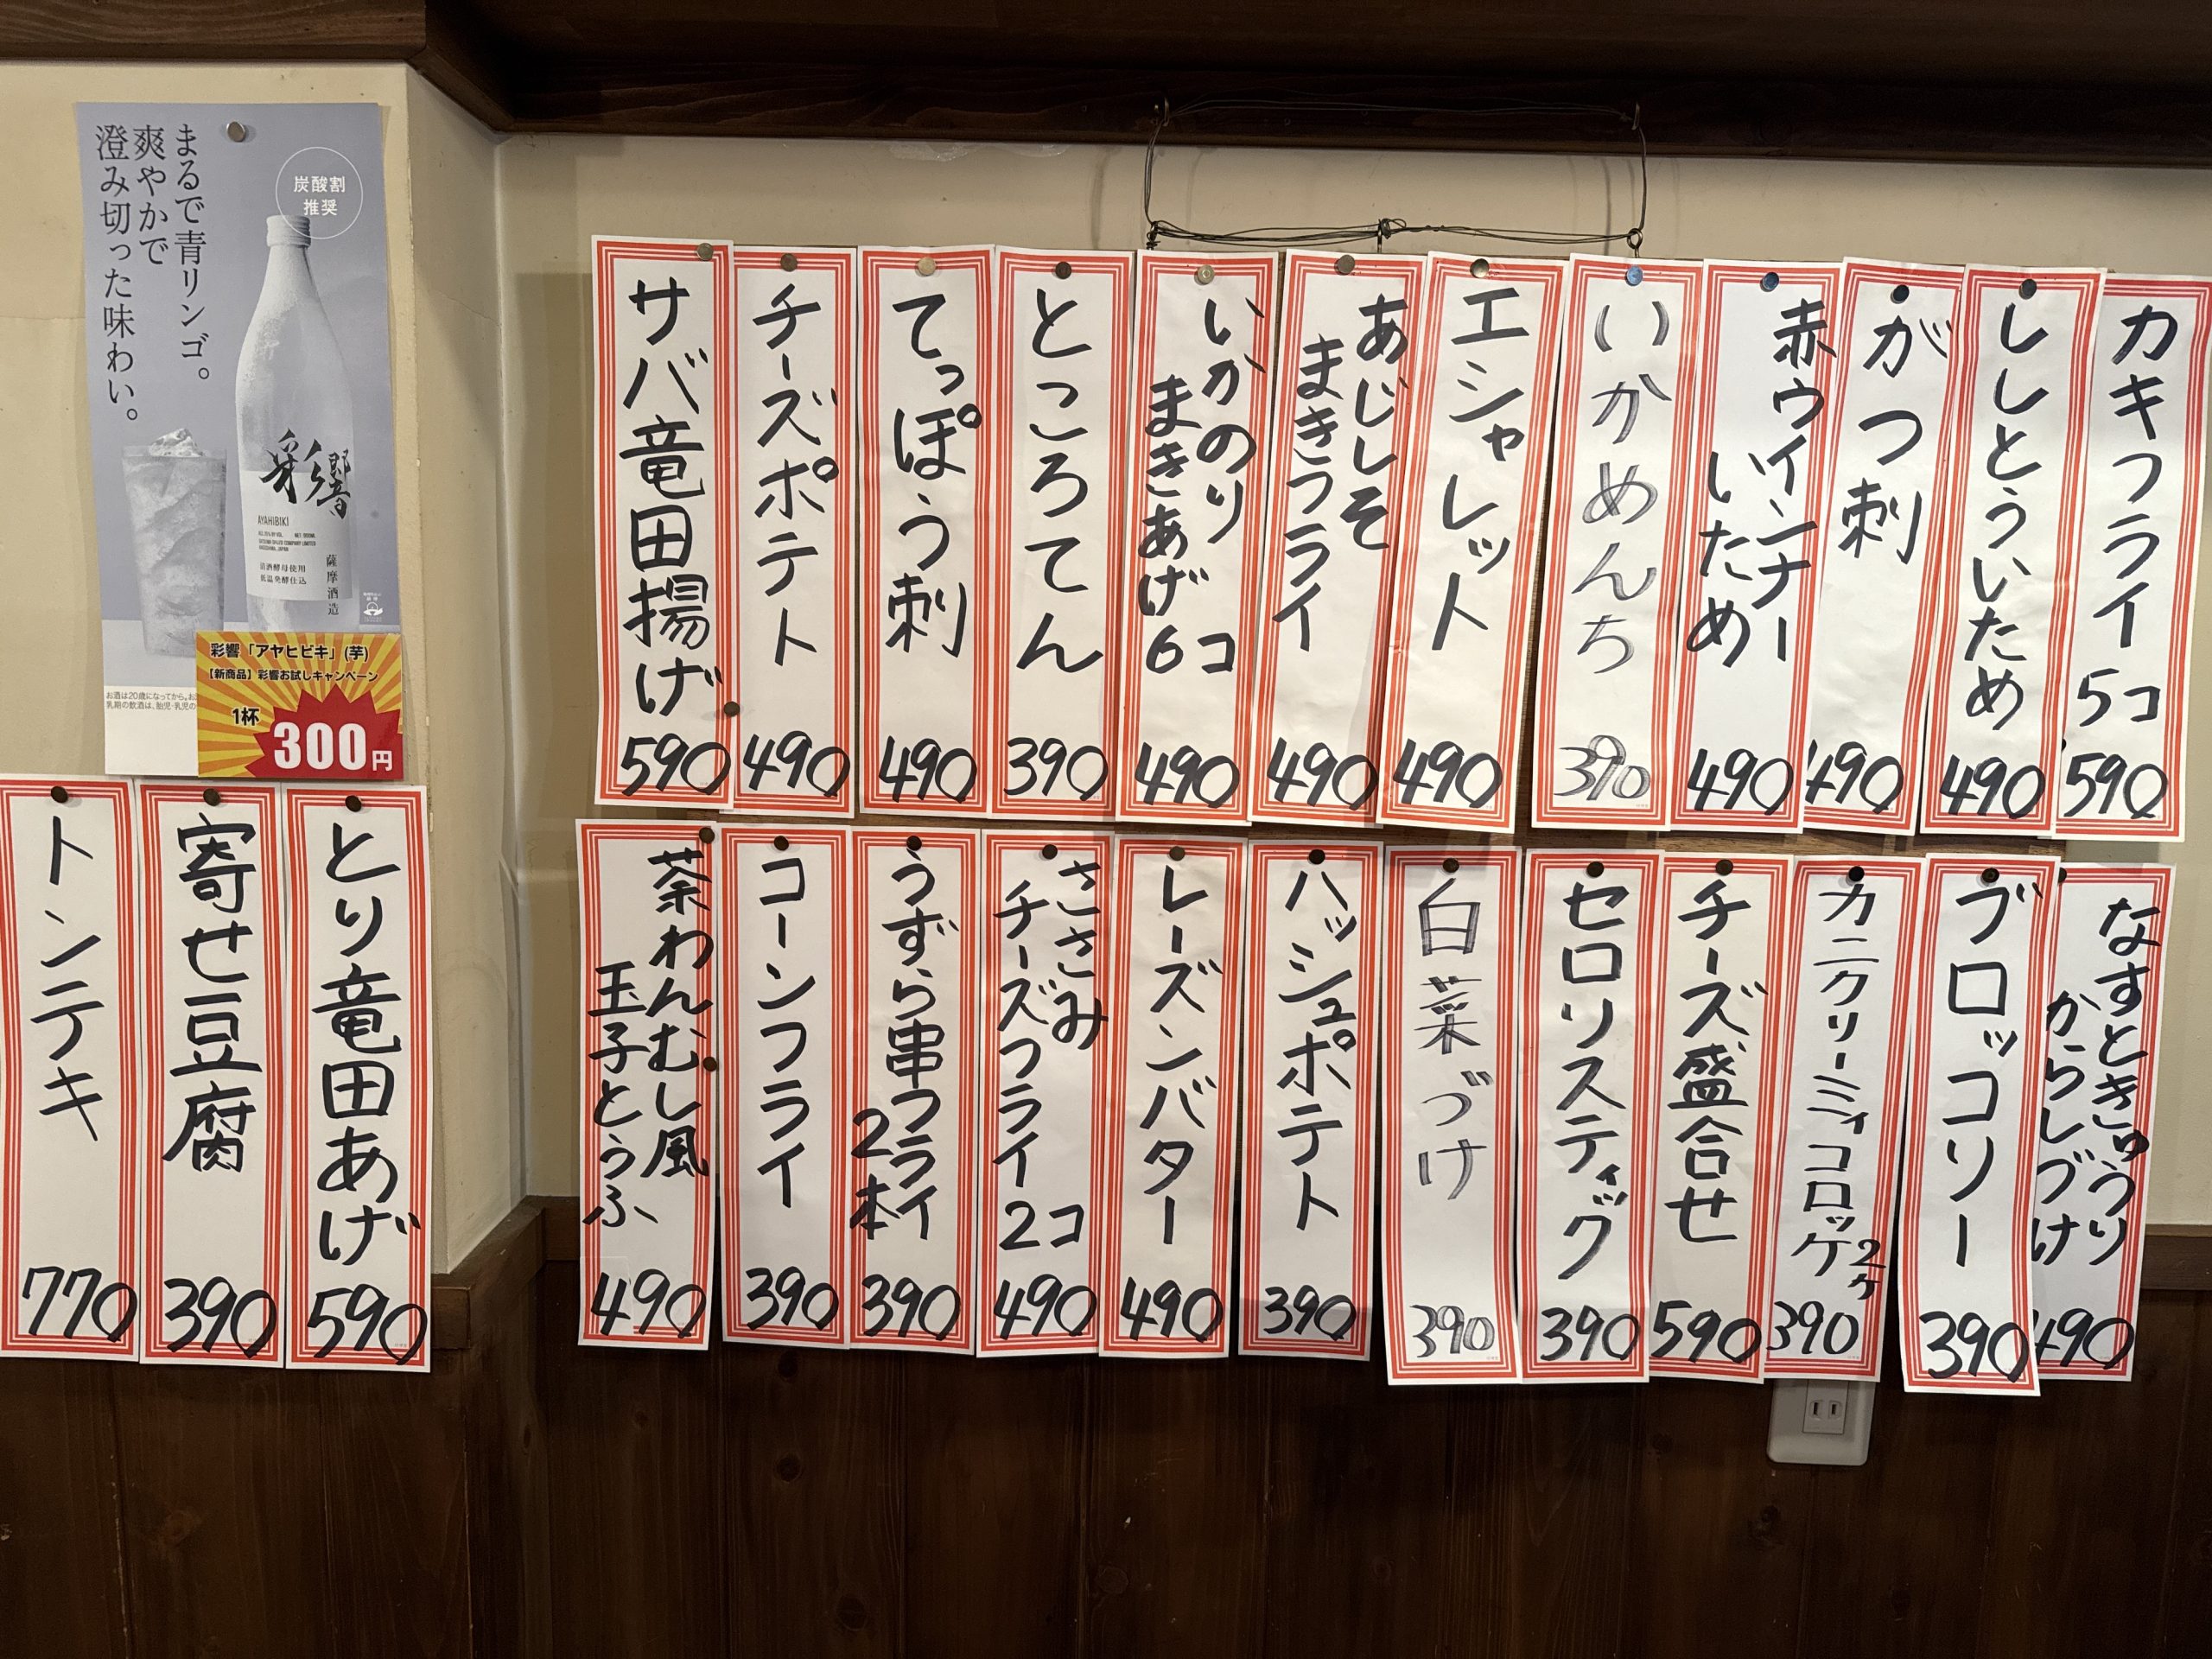 まるで青リンゴ。
爽やかで
澄み切った味わい。
炭酸割
推奨
彩響
AYAHIBIKI
清酒酵母使用
低温発酵仕込
薩摩酒造
彩響「アヤヒビキ」(芋)
【新商品】彩響お試しキャンペーン
1杯
300円
カキフライ
5コ
590
ししとういため
490
がつ刺
490
赤ウインナー
いため
490
いかめんち
390
エシャレット
490
あじしそ
まきフライ
490
いかのり
まきあげ
6コ
490
ところてん
390
てっぽう刺
490
チーズポテト
490
サバ竜田揚げ
590
なすときゅうり
からしづけ
490
ブロッコリー
390
カニクリーミィコロッケ
2ヶ
390
チーズ盛合せ
590
セロリスティック
390
白菜づけ
390
ハッシュポテト
390
レーズンバター
490
ささみ
チーズフライ
2コ
490
うずら串フライ
2本
390
コーンフライ
390
茶わんむし風
玉子とうふ
490
とり竜田あげ
590
寄せ豆腐
390
トンテキ
770